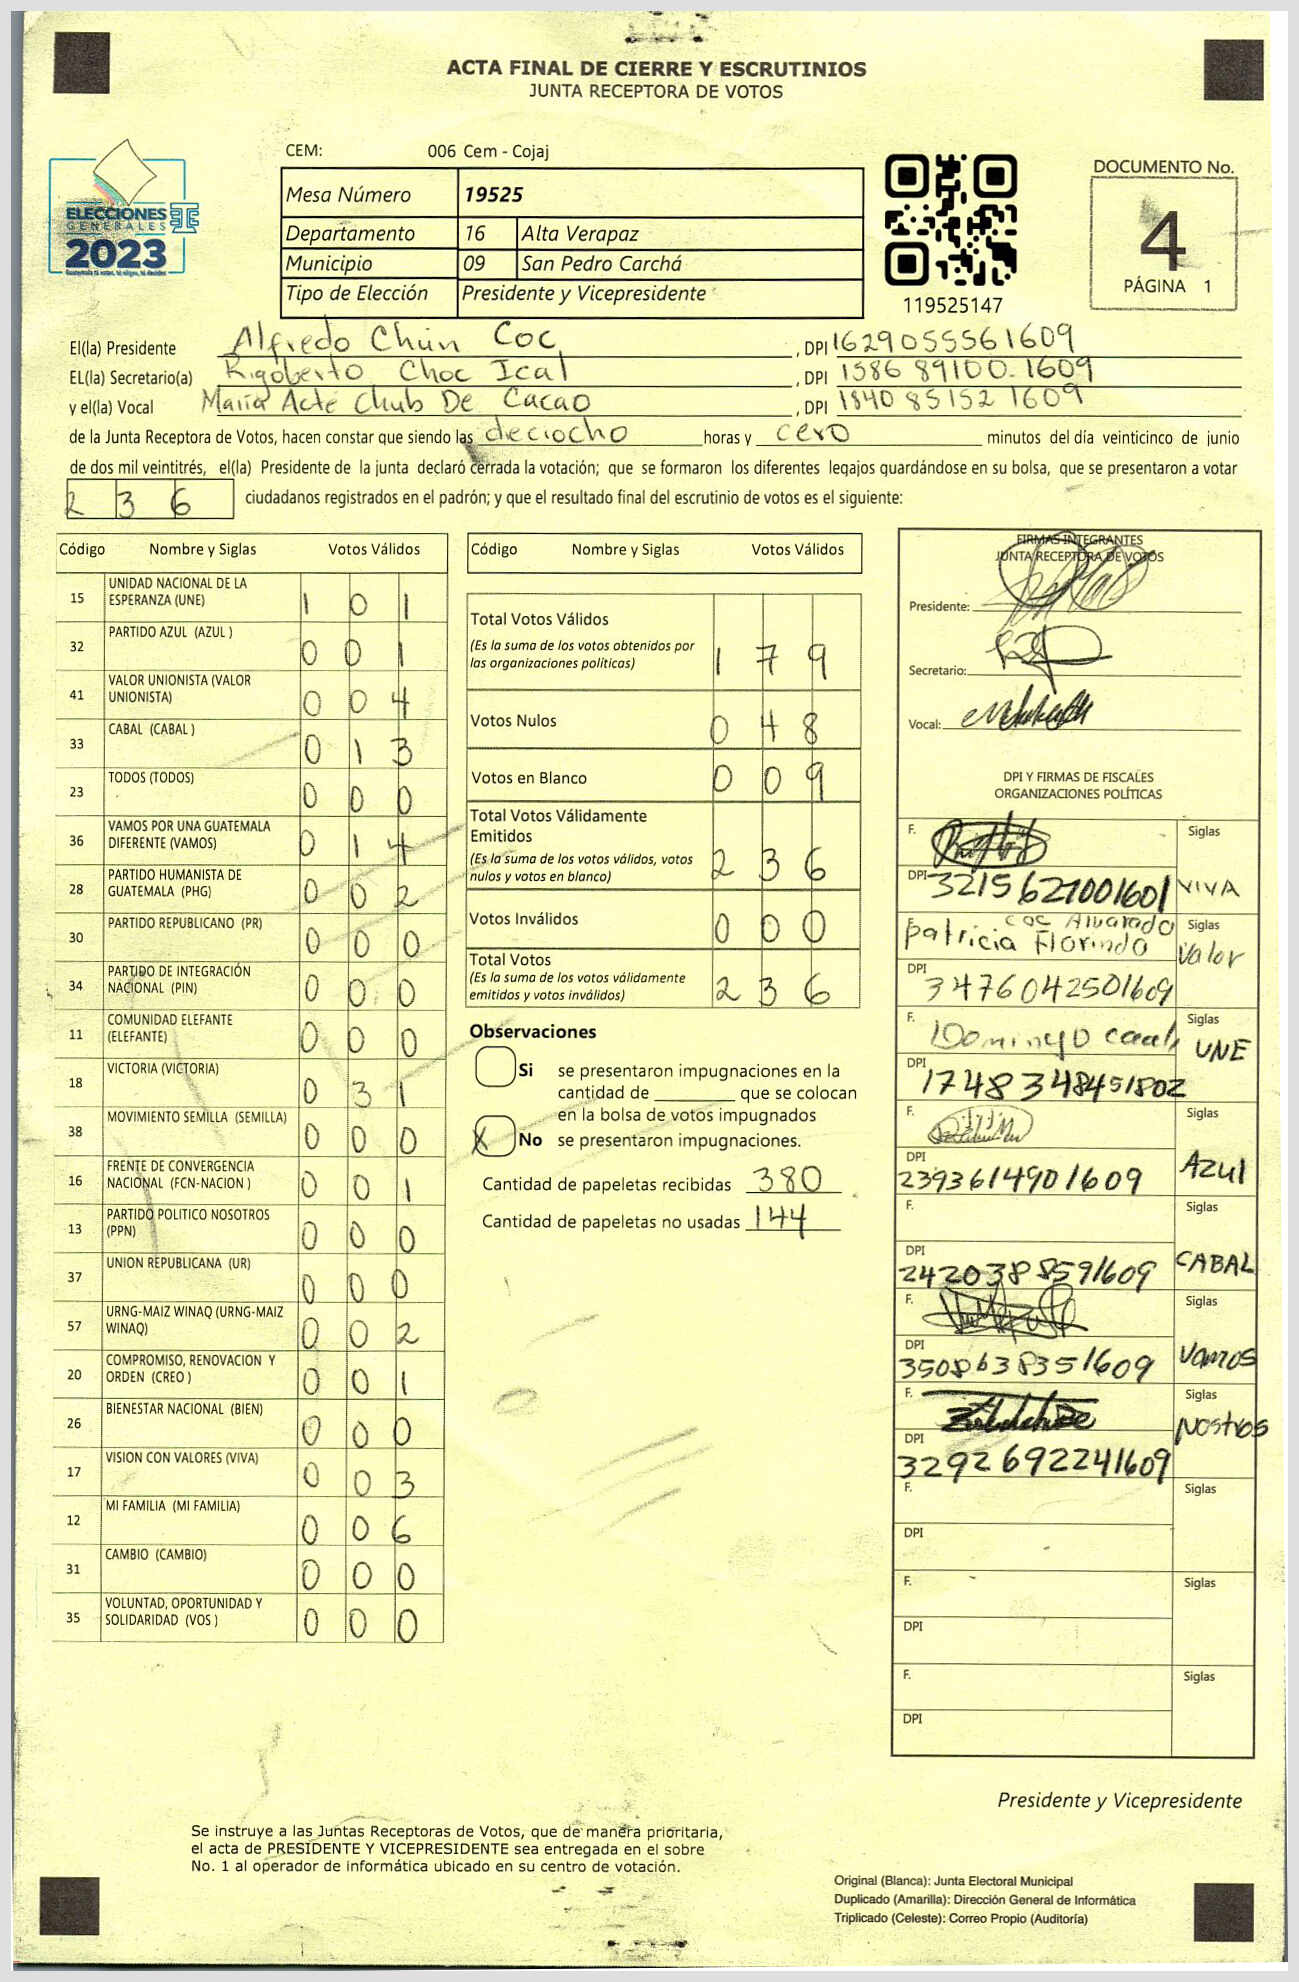 ACTA FINAL DE CIERRE Y ESCRUTINIOS
JUNTA RECEPTORA DE VOTOS
ELECCIONES
GENERALES
2023
Guatemala tú votas, tú eliges, tú decides
CEM: 006 Cem - Cojaj
Mesa Número 19525
Departamento 16 Alta Verapaz
Municipio 09 San Pedro Carchá
Tipo de Elección Presidente y Vicepresidente
119525147
DOCUMENTO No.
4
PÁGINA 1
El(la) Presidente Alfredo Chún Coc, DPI 1629055561609
EL(la) Secretario(a) Rigoberto Choc Ical, DPI 1586 89100 1609
y el(la) Vocal María Acté Chub De Cacao, DPI 1840 85152 1609
de la Junta Receptora de Votos, hacen constar que siendo las deciocho horas y cero minutos del día veinticinco de junio
de dos mil veintitrés, el(la) Presidente de la junta declaró cerrada la votación; que se formaron los diferentes legajos guardándose en su bolsa, que se presentaron a votar
236 ciudadanos registrados en el padrón; y que el resultado final del escrutinio de votos es el siguiente:
Código Nombre y Siglas Votos Válidos
15 UNIDAD NACIONAL DE LA ESPERANZA (UNE) 1 0 1
32 PARTIDO AZUL (AZUL ) 0 0 1
41 VALOR UNIONISTA (VALOR UNIONISTA) 0 0 4
33 CABAL (CABAL ) 0 1 3
23 TODOS (TODOS) 0 0 0
36 VAMOS POR UNA GUATEMALA DIFERENTE (VAMOS) 0 1 4
28 PARTIDO HUMANISTA DE GUATEMALA (PHG) 0 0 2
30 PARTIDO REPUBLICANO (PR) 0 0 0
34 PARTIDO DE INTEGRACIÓN NACIONAL (PIN) 0 0 0
11 COMUNIDAD ELEFANTE (ELEFANTE) 0 0 0
18 VICTORIA (VICTORIA) 0 3 1
38 MOVIMIENTO SEMILLA (SEMILLA) 0 0 0
16 FRENTE DE CONVERGENCIA NACIONAL (FCN-NACION ) 0 0 1
13 PARTIDO POLITICO NOSOTROS (PPN) 0 0 0
37 UNION REPUBLICANA (UR) 0 0 0
57 URNG-MAIZ WINAQ (URNG-MAIZ WINAQ) 0 0 2
20 COMPROMISO, RENOVACION Y ORDEN (CREO ) 0 0 1
26 BIENESTAR NACIONAL (BIEN) 0 0 0
17 VISION CON VALORES (VIVA) 0 0 3
12 MI FAMILIA (MI FAMILIA) 0 0 6
31 CAMBIO (CAMBIO) 0 0 0
35 VOLUNTAD, OPORTUNIDAD Y SOLIDARIDAD (VOS ) 0 0 0
Código Nombre y Siglas Votos Válidos
Total Votos Válidos 1 7 9
(Es la suma de los votos obtenidos por
las organizaciones políticas)
Votos Nulos 0 4 8
Votos en Blanco 0 0 9
Total Votos Válidamente
Emitidos 2 3 6
(Es la suma de los votos válidos, votos
nulos y votos en blanco)
Votos Inválidos 0 0 0
Total Votos 2 3 6
(Es la suma de los votos válidamente
emitidos y votos inválidos)
Observaciones
Si se presentaron impugnaciones en la
cantidad de ________ que se colocan
en la bolsa de votos impugnados
X No se presentaron impugnaciones.
Cantidad de papeletas recibidas 380
Cantidad de papeletas no usadas 144
FIRMAS INTEGRANTES
JUNTA RECEPTORA DE VOTOS
Presidente:
Secretario:
Vocal:
DPI Y FIRMAS DE FISCALES
ORGANIZACIONES POLÍTICAS
F. Siglas
DPI 3215627001601 VIVA
F. Patricia Florinda Coc Alvarado Siglas Valor
DPI 3476042501609
F. Domingo Caal Siglas UNE
DPI 1748348451802
F. Siglas Azul
DPI 2393614901609
F. Siglas
DPI 2420388591609 CABAL
F. Siglas
DPI 3508638351609 Vamos
F. Siglas Nostros
DPI 3292692241609
F. Siglas
DPI
F. Siglas
DPI
F. Siglas
DPI
Presidente y Vicepresidente
Se instruye a las Juntas Receptoras de Votos, que de manera prioritaria,
el acta de PRESIDENTE Y VICEPRESIDENTE sea entregada en el sobre
No. 1 al operador de informática ubicado en su centro de votación.
Original (Blanca): Junta Electoral Municipal
Duplicado (Amarilla): Dirección General de Informática
Triplicado (Celeste): Correo Propio (Auditoría)